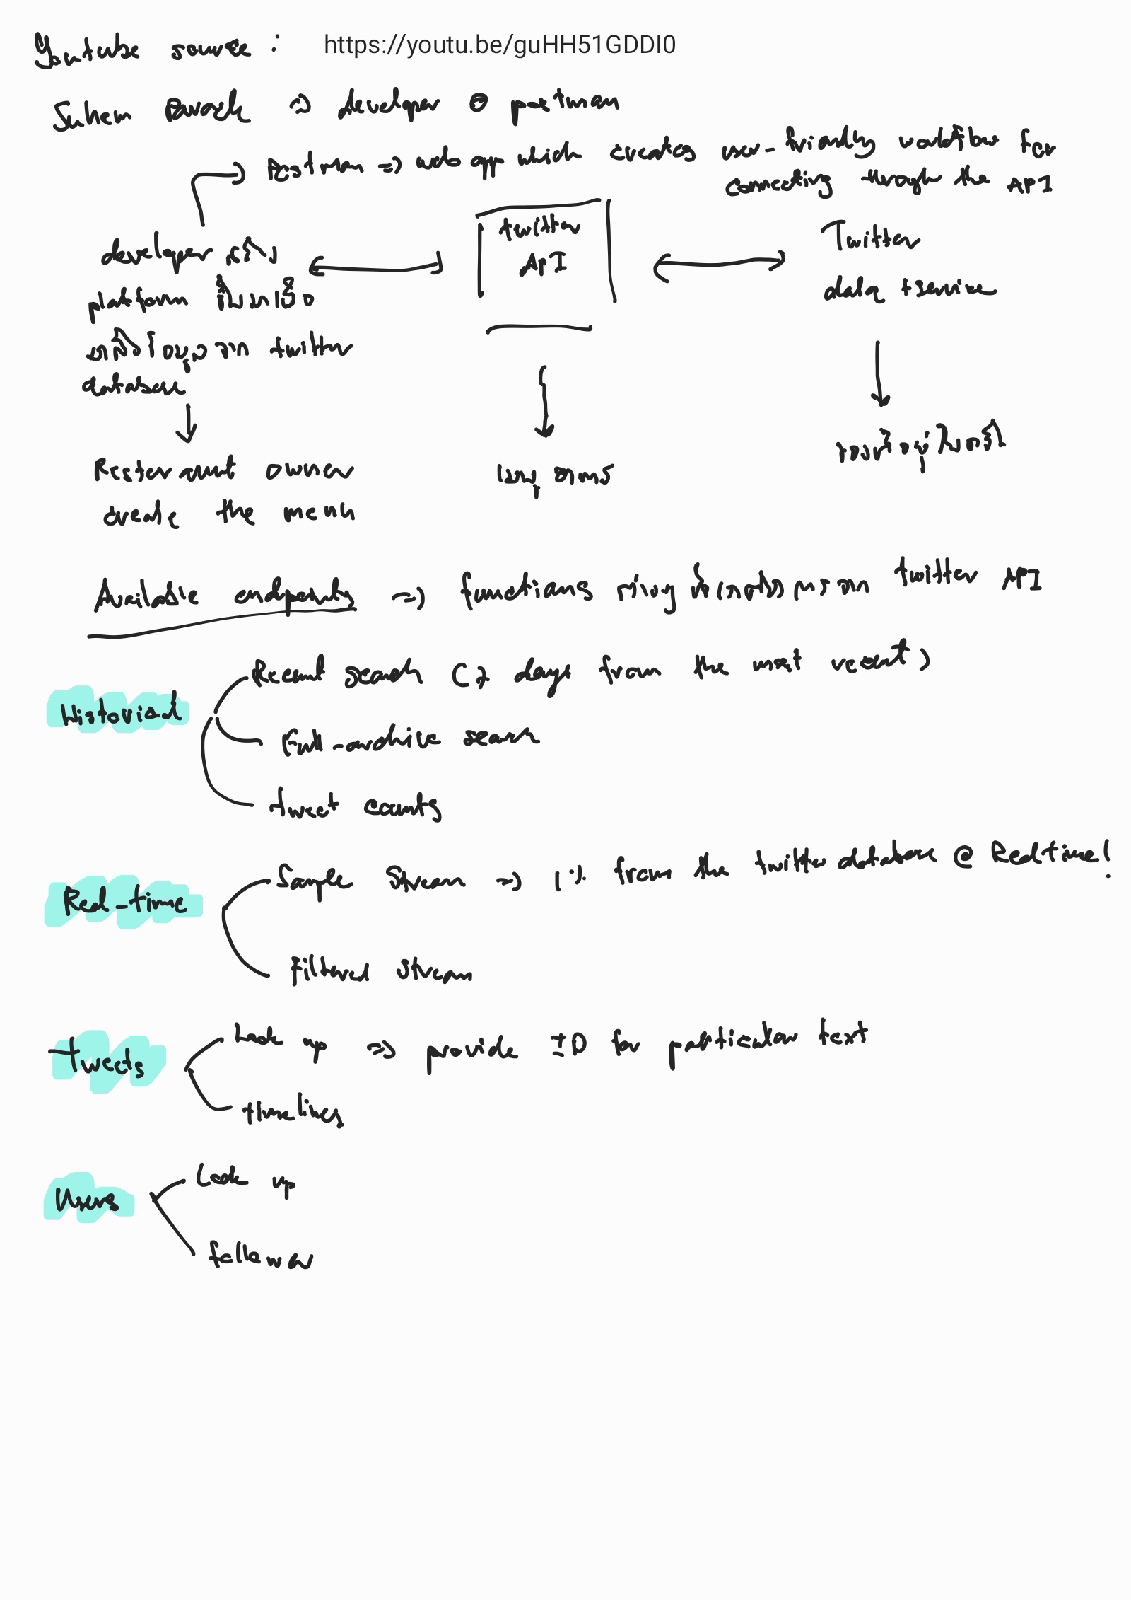 Youtube source : https://youtu.be/guHH51GDDI0
Suhem Parack => developer @ postman
Postman => web app which creates user-friendly workflow for
connecting through the API
developer สร้าง
platform ขึ้นมาเพื่อ
ดึงข้อมูลจาก twitter
database
twitter
API
Twitter
data + service
Restaraunt owner
create the menu
เมนูอาหาร
Available endpoints => functions จาก twitter API
Historical
Recent search (7 days from the most recent)
Full-archive search
tweet counts
Real-time
Sample Stream => 1% from the twitter database @ Realtime!
Filtered stream
Tweets
Look up => provide ID for particular text
timelines
Users
Look up
follower